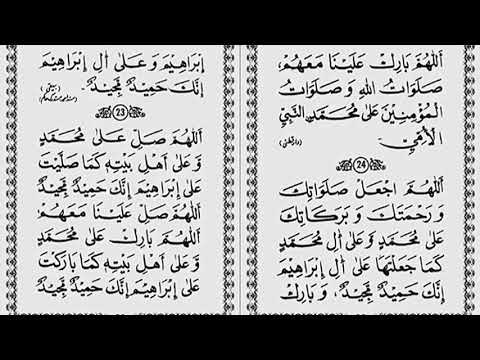 اِبْرَاهِيْمَ وَعَلٰى اٰلِ اِبْرَاهِيْمَ
اِنَّكَ حَمِيْدٌ مَّجِيْدٌ
23
اَللّٰهُمَّ صَلِّ عَلٰى مُحَمَّدٍ
وَّعَلٰى اَهْلِ بَيْتِهٖ كَمَا صَلَّيْتَ
عَلٰى اِبْرَاهِيْمَ اِنَّكَ حَمِيْدٌ مَّجِيْدٌ
اَللّٰهُمَّ صَلِّ عَلَيْنَا مَعَهُمْ
اَللّٰهُمَّ بَارِكْ عَلٰى مُحَمَّدٍ
وَّعَلٰى اَهْلِ بَيْتِهٖ كَمَا بَارَكْتَ
عَلٰى اِبْرَاهِيْمَ اِنَّكَ حَمِيْدٌ مَّجِيْدٌ
اَللّٰهُمَّ بَارِكْ عَلَيْنَا مَعَهُمْ،
صَلَوَاتُ اللّٰهِ وَ صَلَوَاتُ
الْمُؤْمِنِيْنَ عَلٰى مُحَمَّدِ النَّبِيِّ
الْاُمِّيِّ. (دارقطنی)
24
اَللّٰهُمَّ اجْعَلْ صَلَوَاتِكَ
وَرَحْمَتَكَ وَ بَرَكَاتِكَ
عَلٰى مُحَمَّدٍ وَّعَلٰى اٰلِ مُحَمَّدٍ
كَمَا جَعَلْتَهَا عَلٰى اٰلِ اِبْرَاهِيْمَ
اِنَّكَ حَمِيْدٌ مَّجِيْدٌ، وَ بَارِكْ